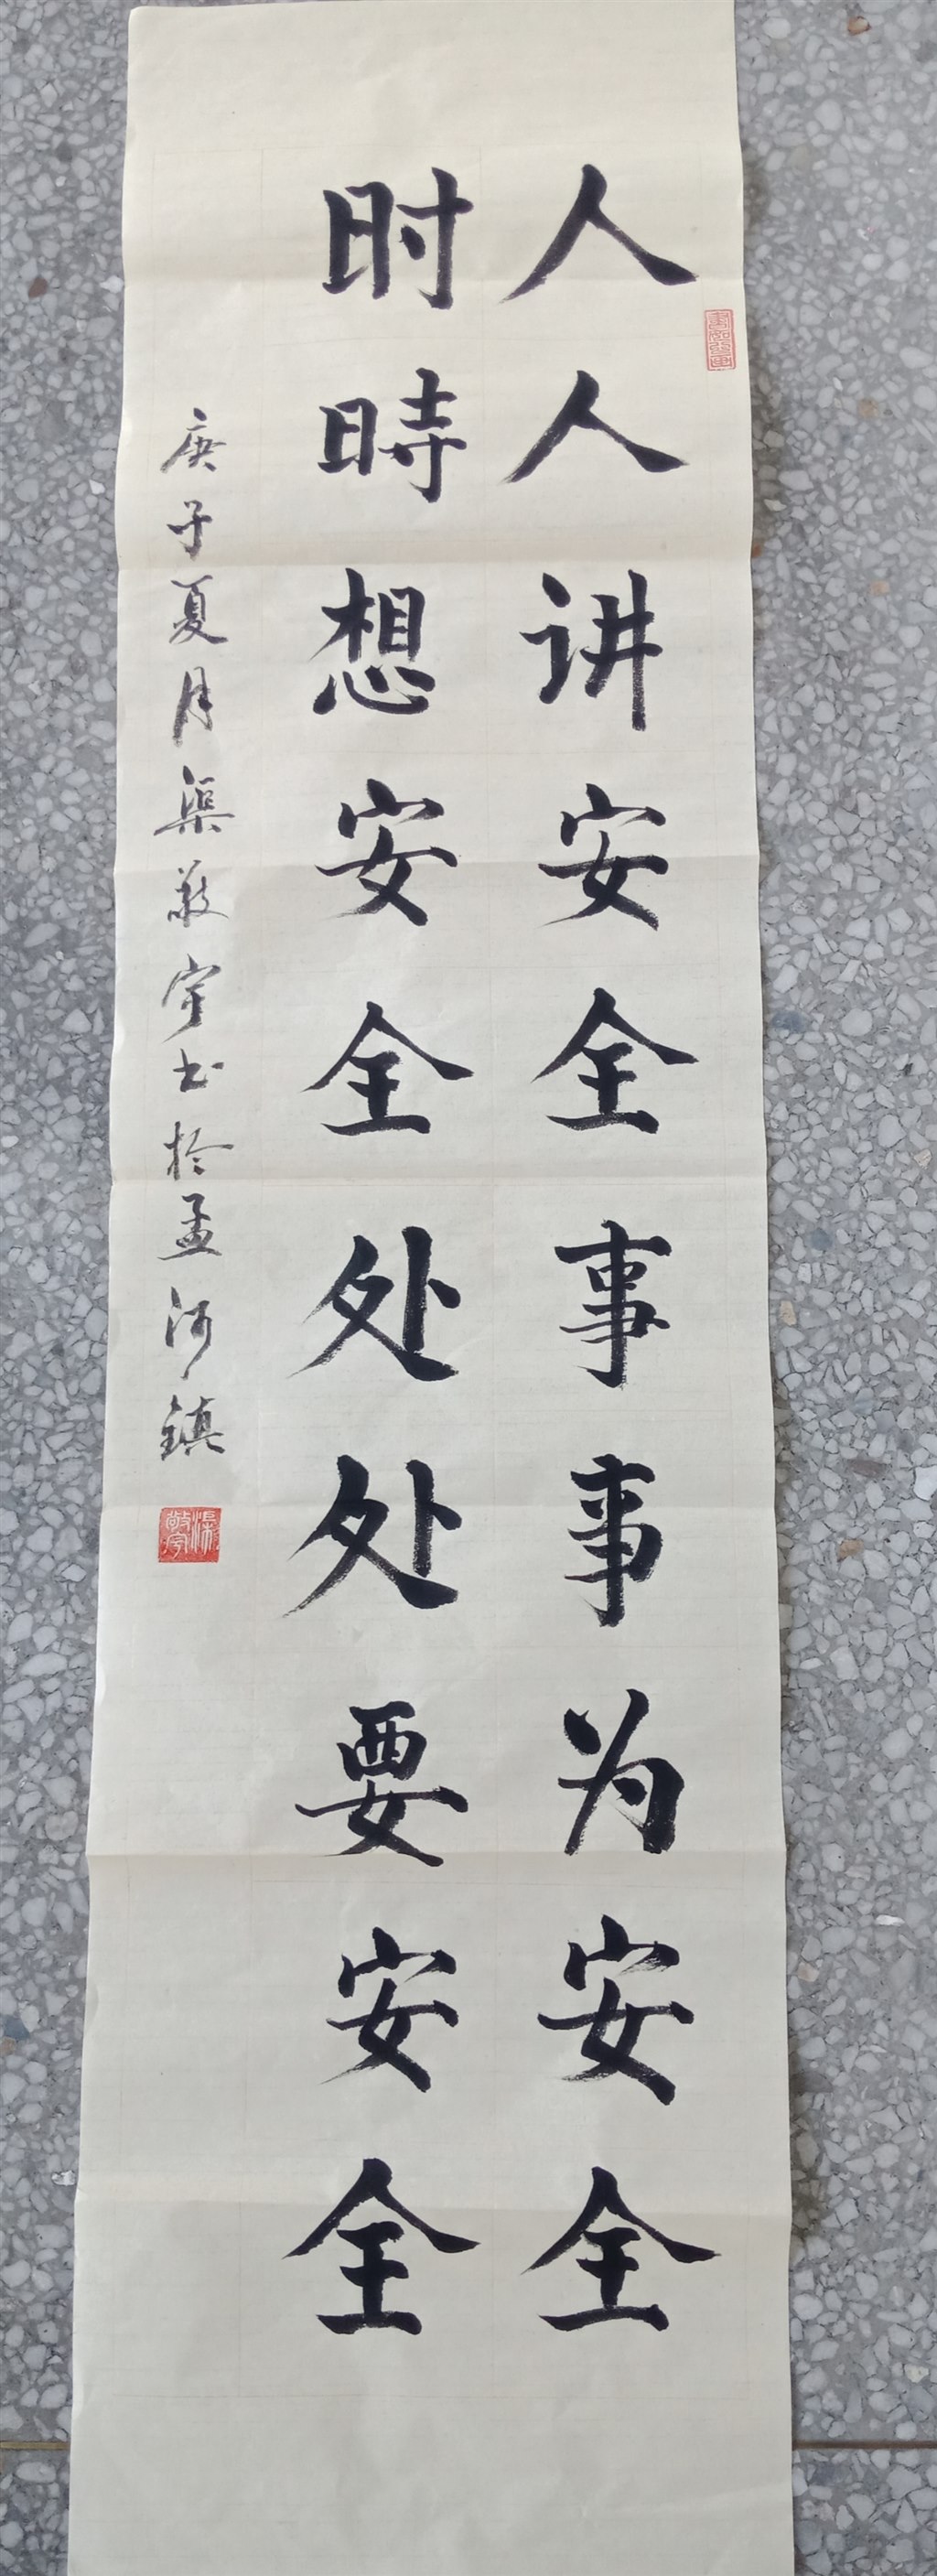 人人讲安全事事为安全
时時想安全处处要安全
庚子夏月渠敬宇书於孟河镇
渠敬宇